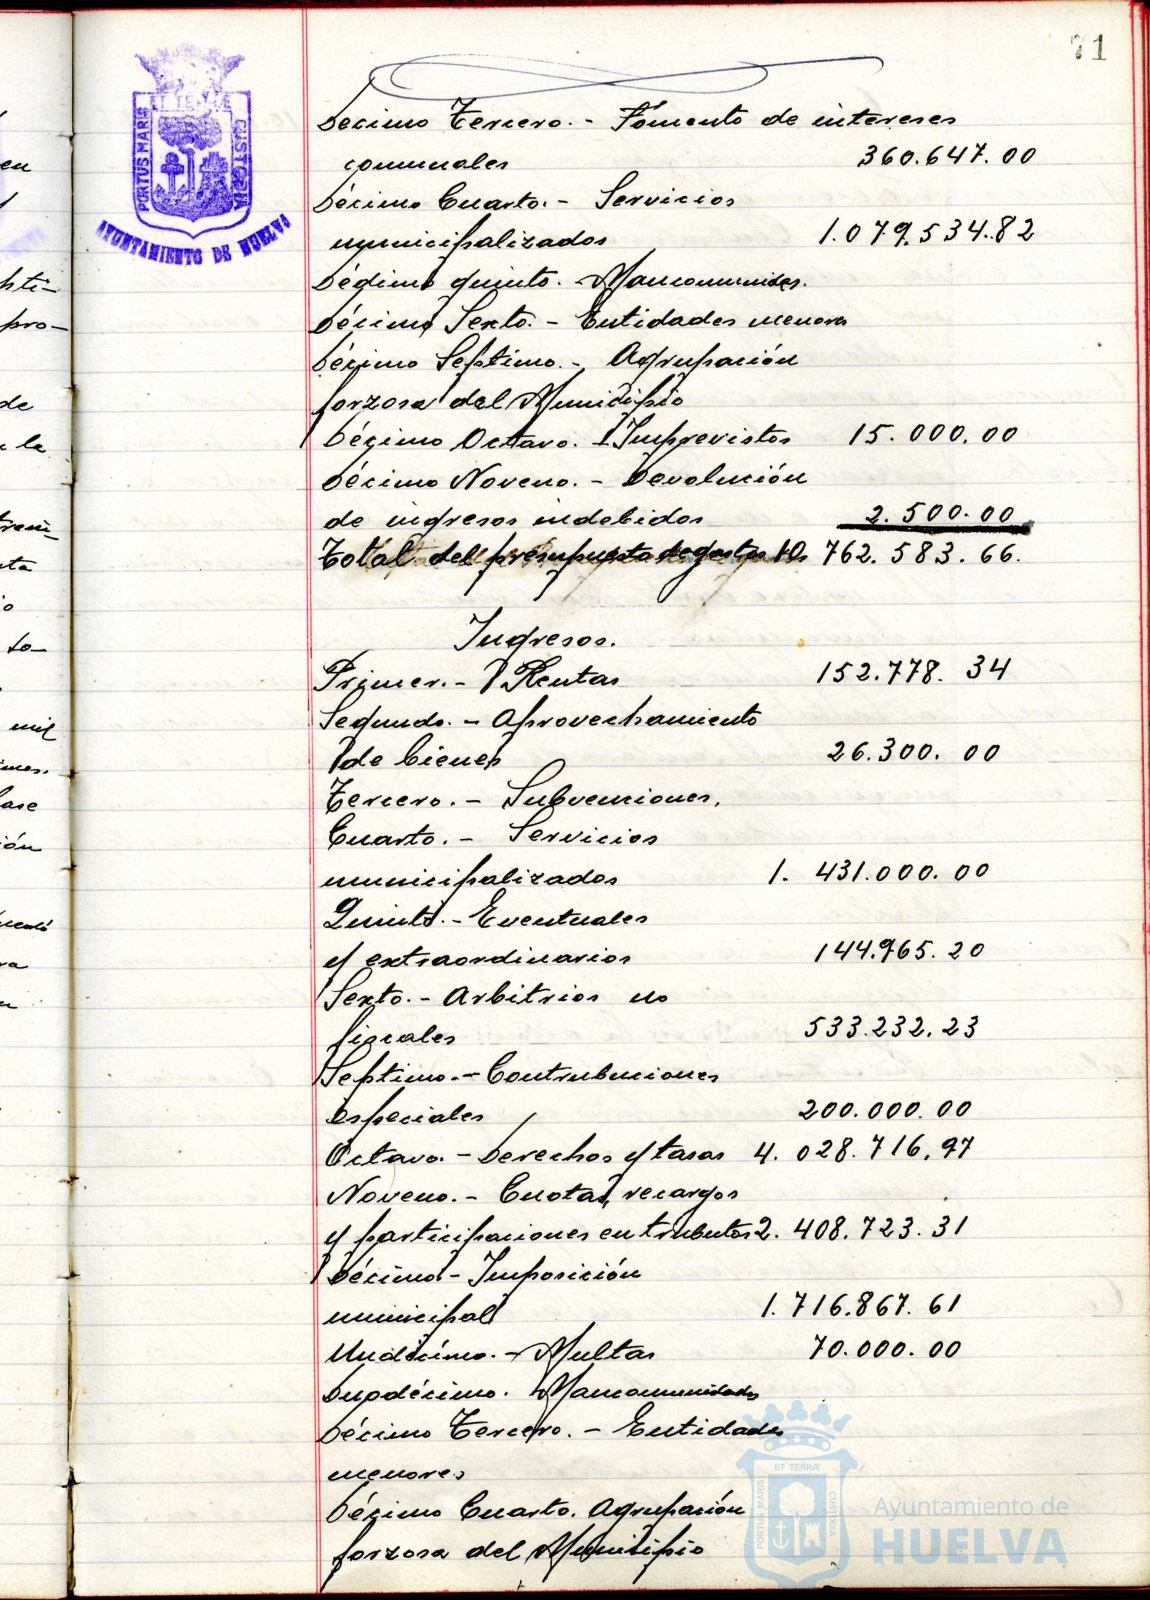 71
ET TERRE
PORTUS MARIS
CUSTODIA
AYUNTAMIENTO DE HUELVA
Decimo Tercero. - Fomento de intereses
comunales 360.647.00
Décimo Cuarto. - Servicios
municipalizados 1.079.534.82
Décimo quinto. - Mancomunides.
Décimo Sexto. - Entidades menores
Décimo Septimo. - Agrupación
forzosa del Municipio
Décimo Octavo. - Imprevistos 15.000.00
Décimo Noveno. - Devolución
de ingresos indebidos 2.500.00
Total del presupuesto de gastos 10. 762.583.66.
Ingresos.
Primer. - Rentas 152.778.34
Segundo. - Aprovechamiento
de bienes 26.300.00
Tercero. - Subvenciones.
Cuarto. - Servicios
municipalizados 1.431.000.00
Quinto. - Eventuales
y extraordinarios 144.965.20
Sexto. - Arbitrios no
fiscales 533.232.23
Septimo. - Contribuciones
especiales 200.000.00
Octavo. - Derechos y tasas 4.028.716,97
Noveno. - Cuotas, recargos
y participaciones en tributos 2.408.723.31
Décimo - Imposición
municipal 1.716.867.61
Undécimo. - Multas 70.000.00
Duodécimo. Mancomunidades
Décimo Tercero. - Entidades
menores
Décimo Cuarto. Agrupación
forzosa del Municipio
ET TERRA
PORTUS MARIS
CUSTODIA
Ayuntamiento de
HUELVA